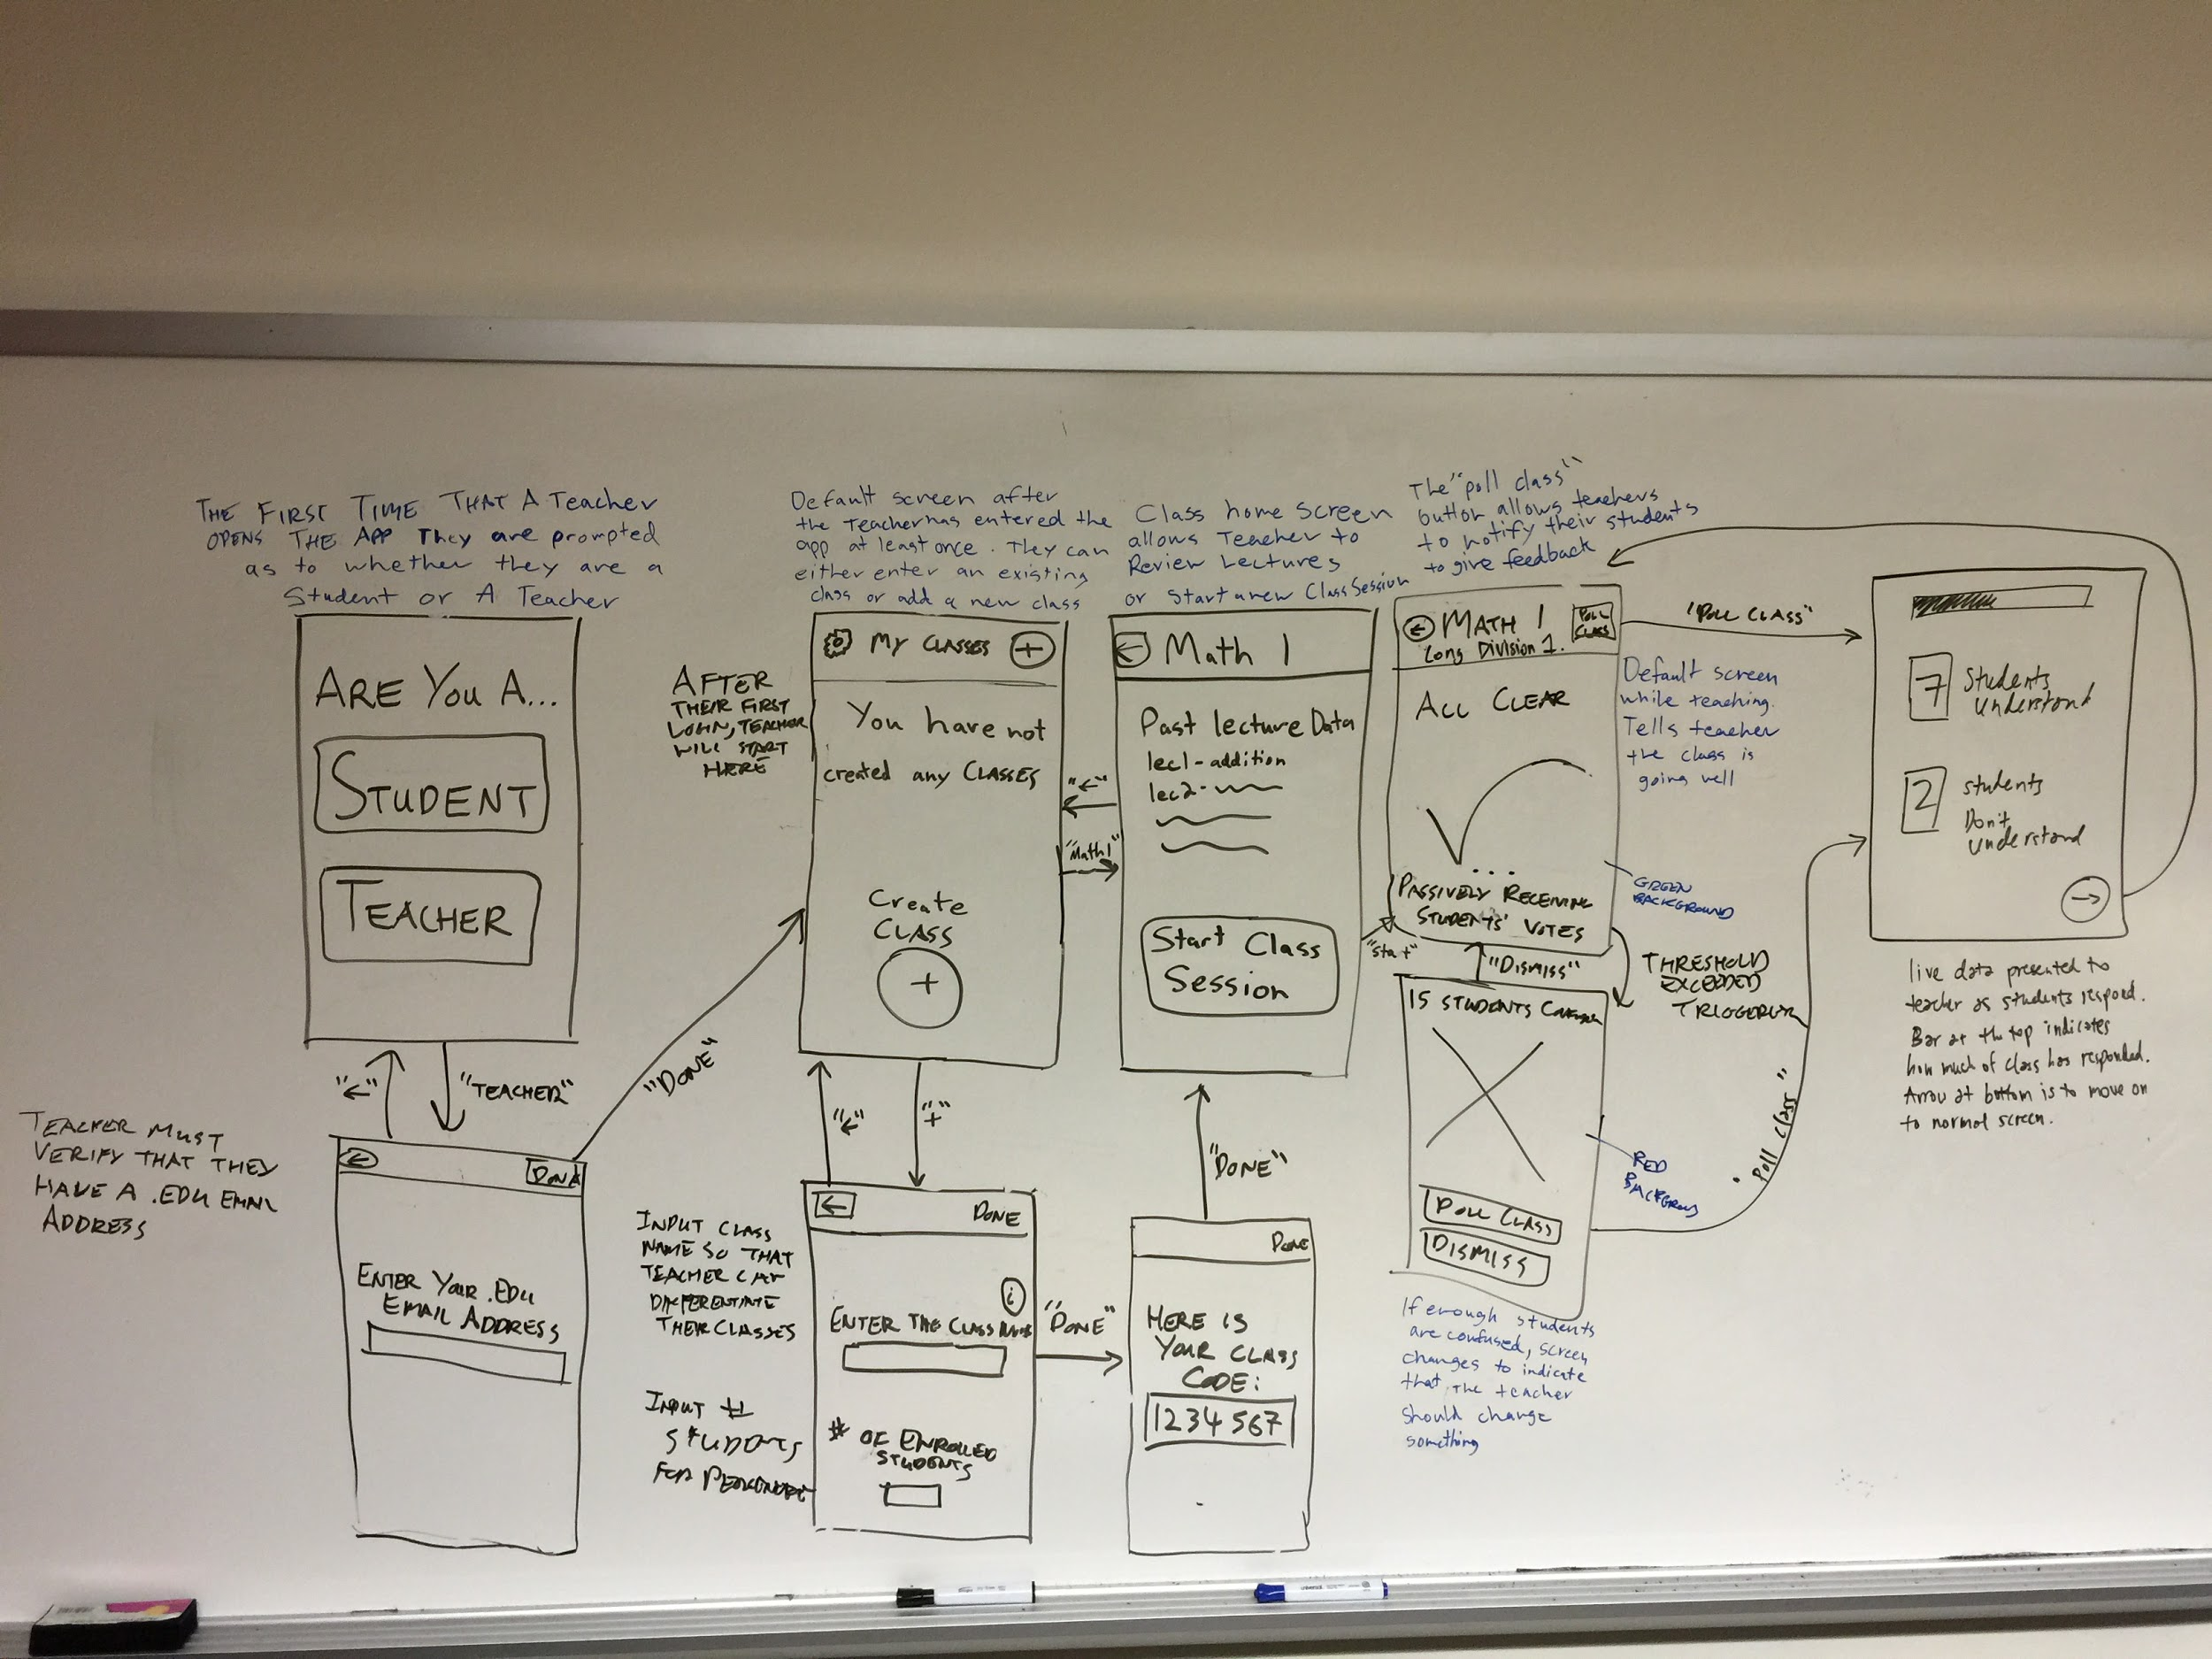 THE FIRST TIME THAT A Teacher
OPENS THE APP They are prompted
as to whether they are a
Student or A Teacher
ARE YOU A...
STUDENT
TEACHER
"←"
"TEACHER"
TEACHER MUST
VERIFY THAT THEY
HAVE A .EDU EMAIL
ADDRESS
←
DONE
ENTER YOUR .EDU
EMAIL ADDRESS
"DONE"
Default screen after
the Teacher has entered the
app at least once. They can
either enter an existing
class or add a new class
AFTER
THEIR FIRST
LOGIN, TEACHER
WILL START
HERE
MY CLASSES +
You have not
created any CLASSES
Create
CLASS
+
"←"
"Math 1"
"←"
"+"
INPUT CLASS
NAME SO THAT
TEACHER CAN
DIFFERENTIATE
THEIR CLASSES
INPUT #
STUDENTS
FOR
←
DONE
i
ENTER THE CLASS NAME
# OF ENROLLED
STUDENTS
"DONE"
Class home screen
allows Teacher to
Review Lectures
or Start a new Class Session
← Math 1
Past lecture Data
lec1-addition
lec2-
Start Class
Session
"Start"
"DONE"
DONE
HERE IS
YOUR CLASS
CODE:
1234567
The "poll class"
button allows teachers
to notify their students
to give feedback
← MATH 1
Long Division 1.
POLL
CLASS
ALL CLEAR
...
PASSIVELY RECEIVING
STUDENTS' VOTES
"POLL CLASS"
Default screen
while teaching.
Tells teacher
the class is
going well
GREEN
BACKGROUND
"DISMISS"
THRESHOLD
EXCEEDED
15 STUDENTS
POLL CLASS
DISMISS
RED
"Poll class"
If enough students
are confused, screen
changes to indicate
that the teacher
should change
something
7 Students
Understand
2 students
Don't
Understand
→
live data presented to
teacher as students respond.
Bar at the top indicates
how much of class has responded.
Arrow at bottom is to move on
to normal screen.